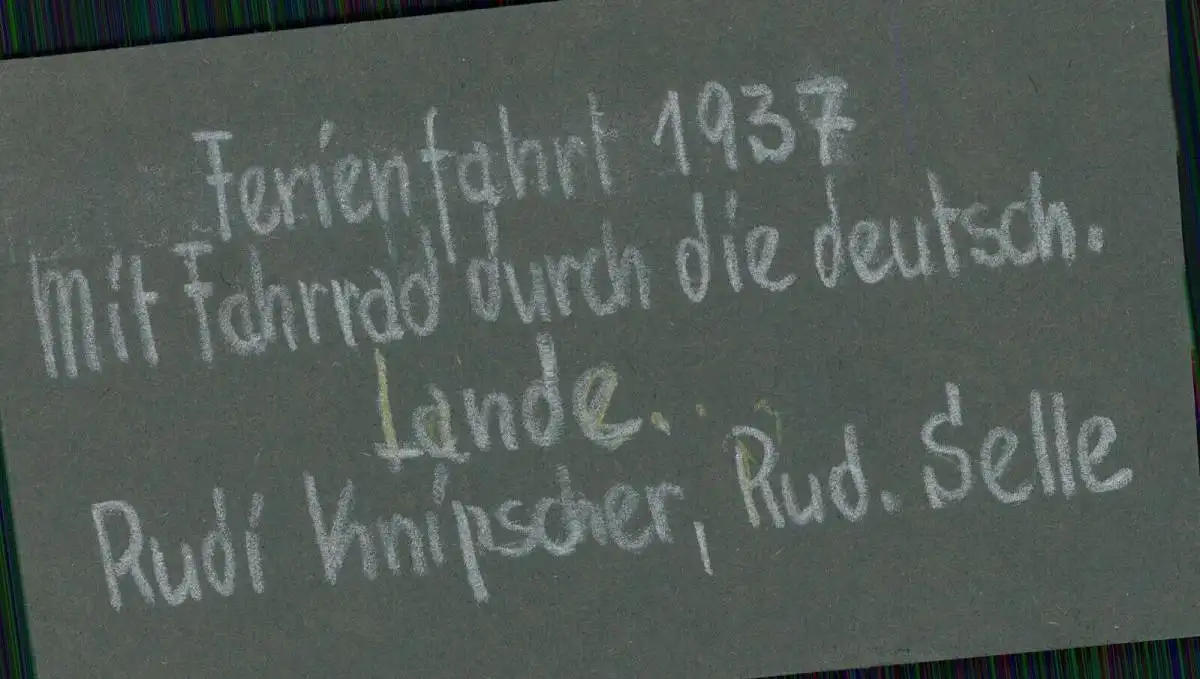 Ferienfahrt 1937
Mit Fahrrad durch die deutsch.
Lande.
Rudi Knipscher, Rud. Selle